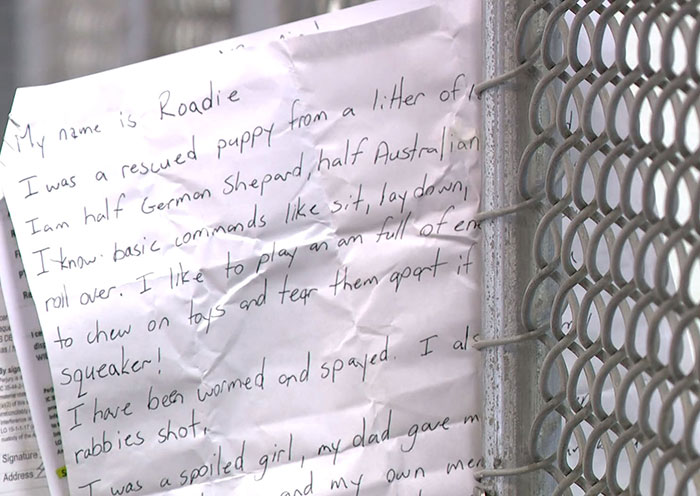 My name is Roadie
I was a rescued puppy from a litter of
I am half German Shepard, half Australian
I know basic commands like sit, lay down,
roll over. I like to play an am full of
to chew on toys and tear them apart if
squeaker!
I have been wormed and spayed. I
rabbies shot.
I was a spoiled girl, my dad gave
and my own
Signature
Address